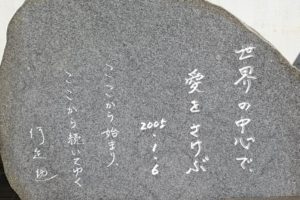 世界の中心で、
愛をさけぶ
2005.1.6
ここから始まり、
ここから続いてゆく
行定勲